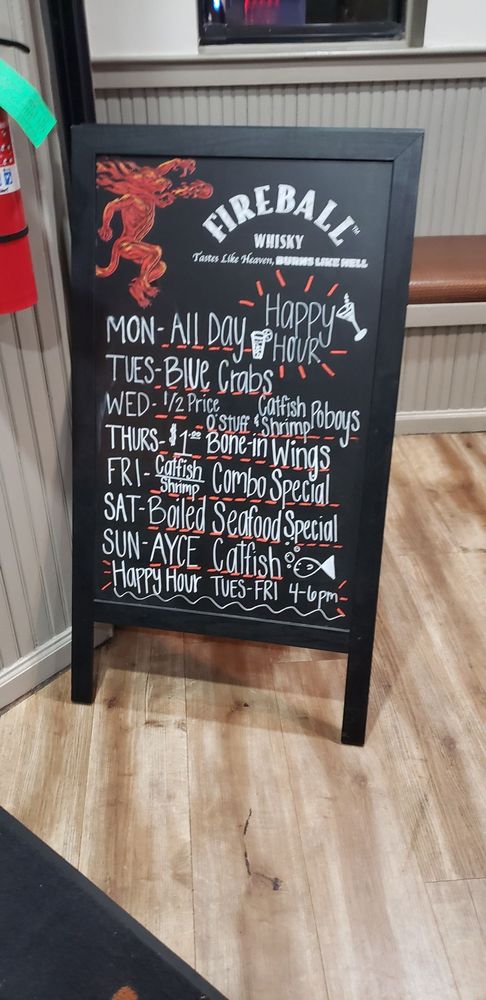 FIREBALL™
WHISKY
Tastes Like Heaven, BURNS LIKE HELL
Happy
HOUR
MON- All Day
TUES- Blue Crabs
WED- 1/2 Price O'Stuff & Catfish Shrimp Poboys
THURS- $1.00 Bone-in Wings
FRI- Catfish Shrimp Combo Special
SAT- Boiled Seafood Special
SUN- AYCE Catfish
Happy Hour TUES-FRI 4-6pm